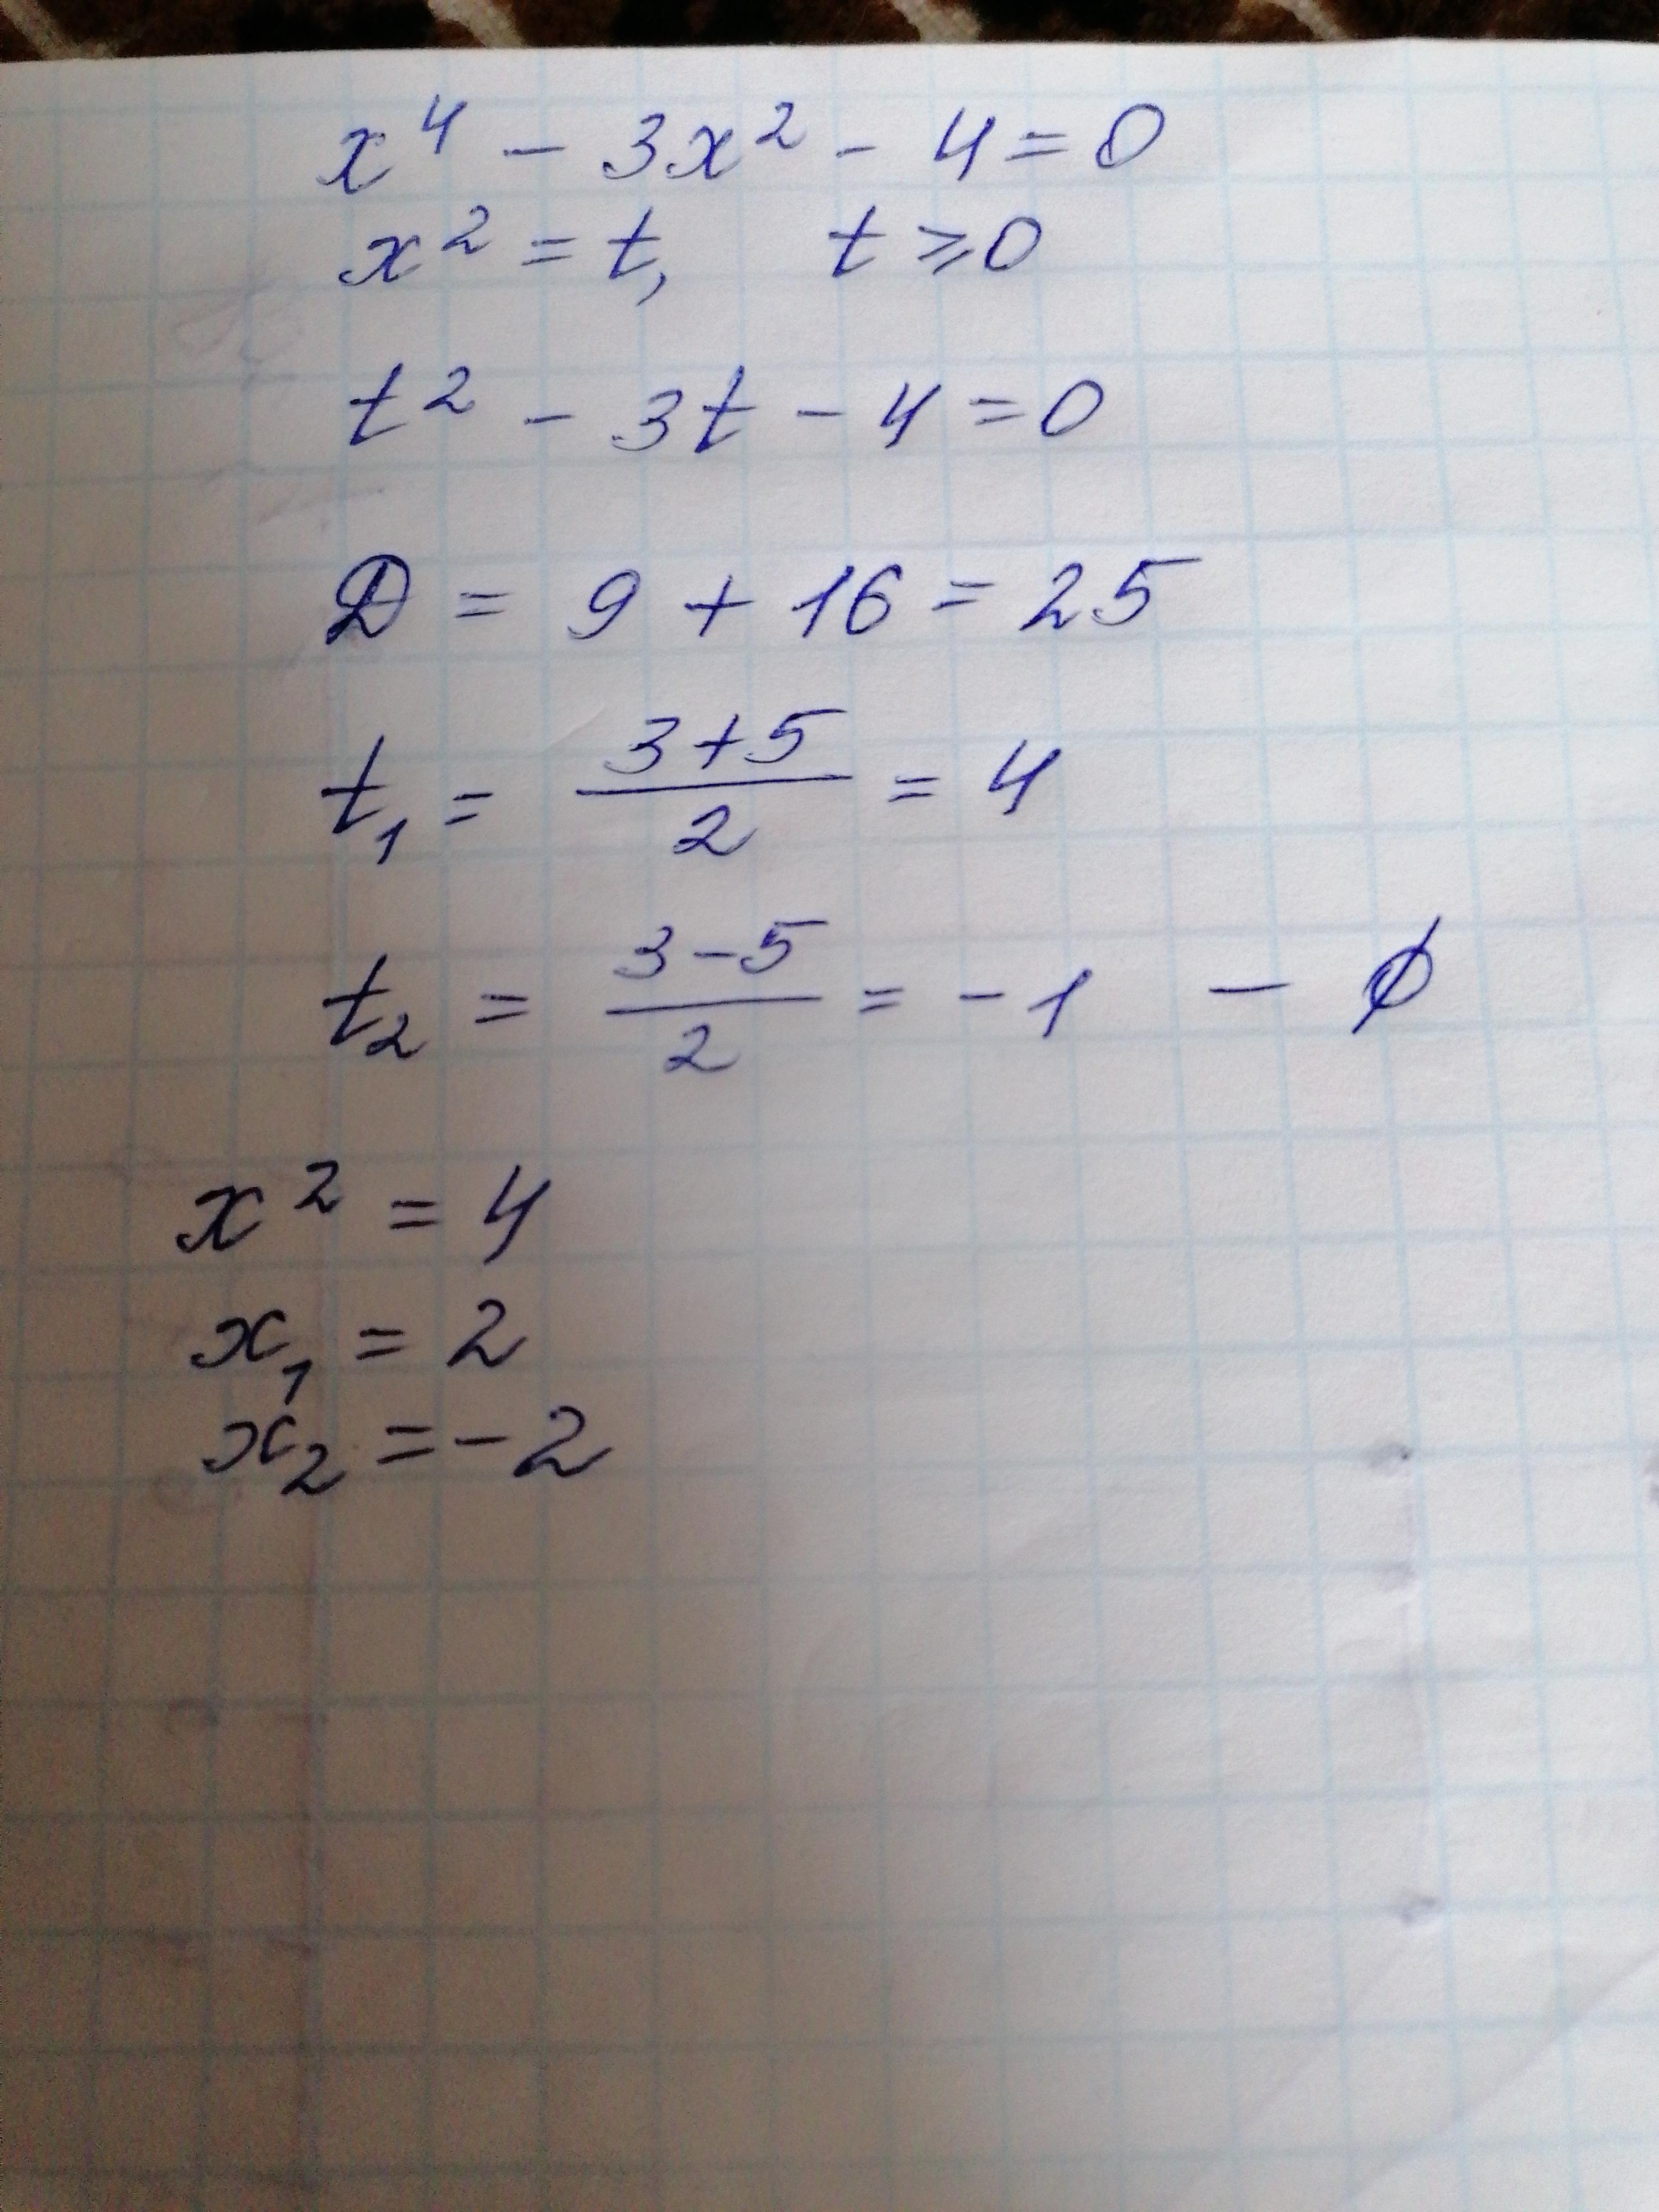 x⁴ - 3x² - 4 = 0
x² = t, t ⩾ 0
t² - 3t - 4 = 0
D = 9 + 16 = 25
t₁ = (3+5)/2 = 4
t₂ = (3-5)/2 = -1 - ∅
x² = 4
x₁ = 2
x₂ = -2